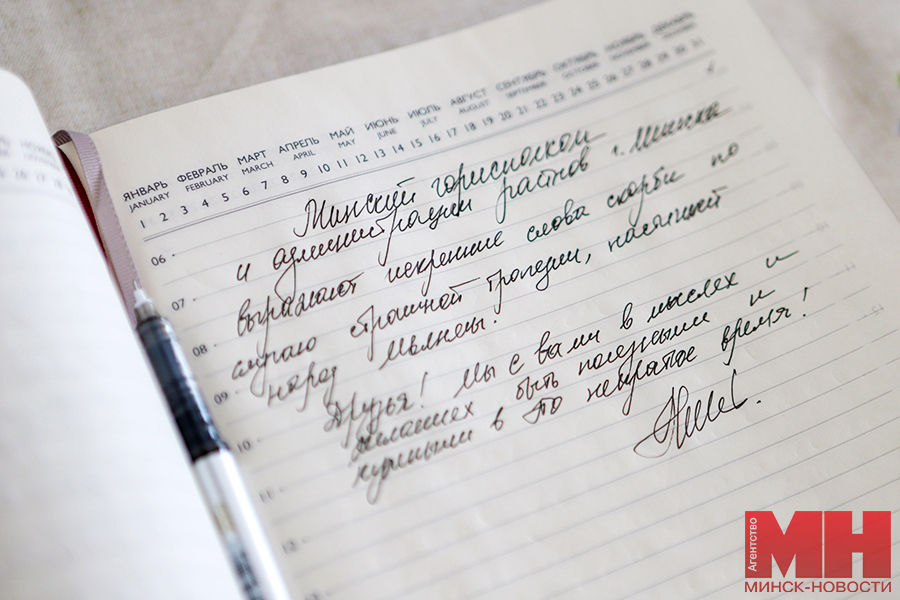 ЯНВАРЬ ФЕВРАЛЬ МАРТ АПРЕЛЬ МАЙ ИЮНЬ ИЮЛЬ АВГУСТ СЕНТЯБРЬ ОКТЯБРЬ НОЯБРЬ ДЕКАБРЬ
JANUARY FEBRUARY MARCH APRIL MAY JUNE JULY AUGUST SEPTEMBER OCTOBER NOVEMBER DECEMBER
1 2 3 4 5 6 7 8 9 10 11 12 13 14 15 16 17 18 19 20 21 22 23 24 25 26 27 28 29 30 31
Минский горисполком
06
и администрации районов г. Минска
07
выражают искренние слова скорби по
08
случаю страшной трагедии, постигшей
09
народ Мьянмы.
Друзья! Мы с вами в мыслях и
10
желаниях быть полезными и
нужными в это непростое время!
11
12
Агентство
МН
МИНСК-НОВОСТИ